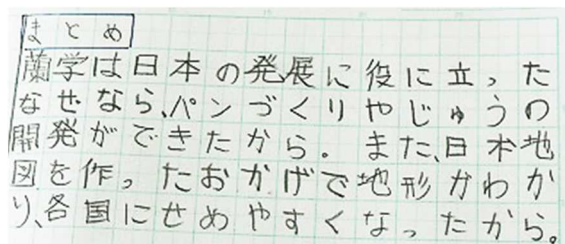 まとめ
蘭学は日本の発展に役に立った
なぜなら、パンづくりやじゅうの
開発ができたから。また、日本地
図を作ったおかげで地形がわか
り、各国にせめやすくなったから。